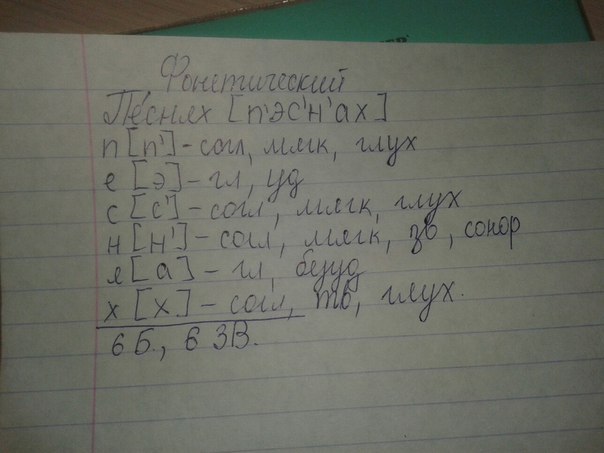 Фонетический
Пе́снях [п'эс'н'ах]
п [п'] - согл, мягк, глух
е [э] - гл, уд
с [с'] - согл, мягк, глух
н [н'] - согл, мягк, зв, сонор
я [а] - гл, безуд
х [х] - согл, тв, глух.
6 Б., 6 ЗВ.